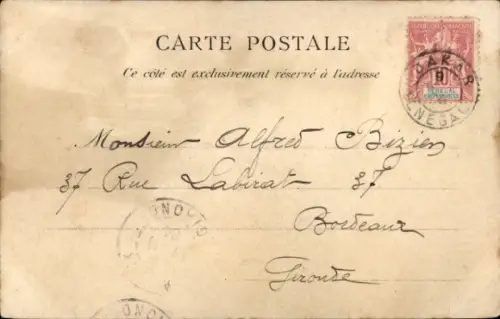 CARTE POSTALE
Ce côté est exclusivement réservé à l'adresse
DAKAR
SÉNÉGAL
10
Monsieur Alfred Bizien
37 Rue Labirat 37
Bordeaux
Gironde